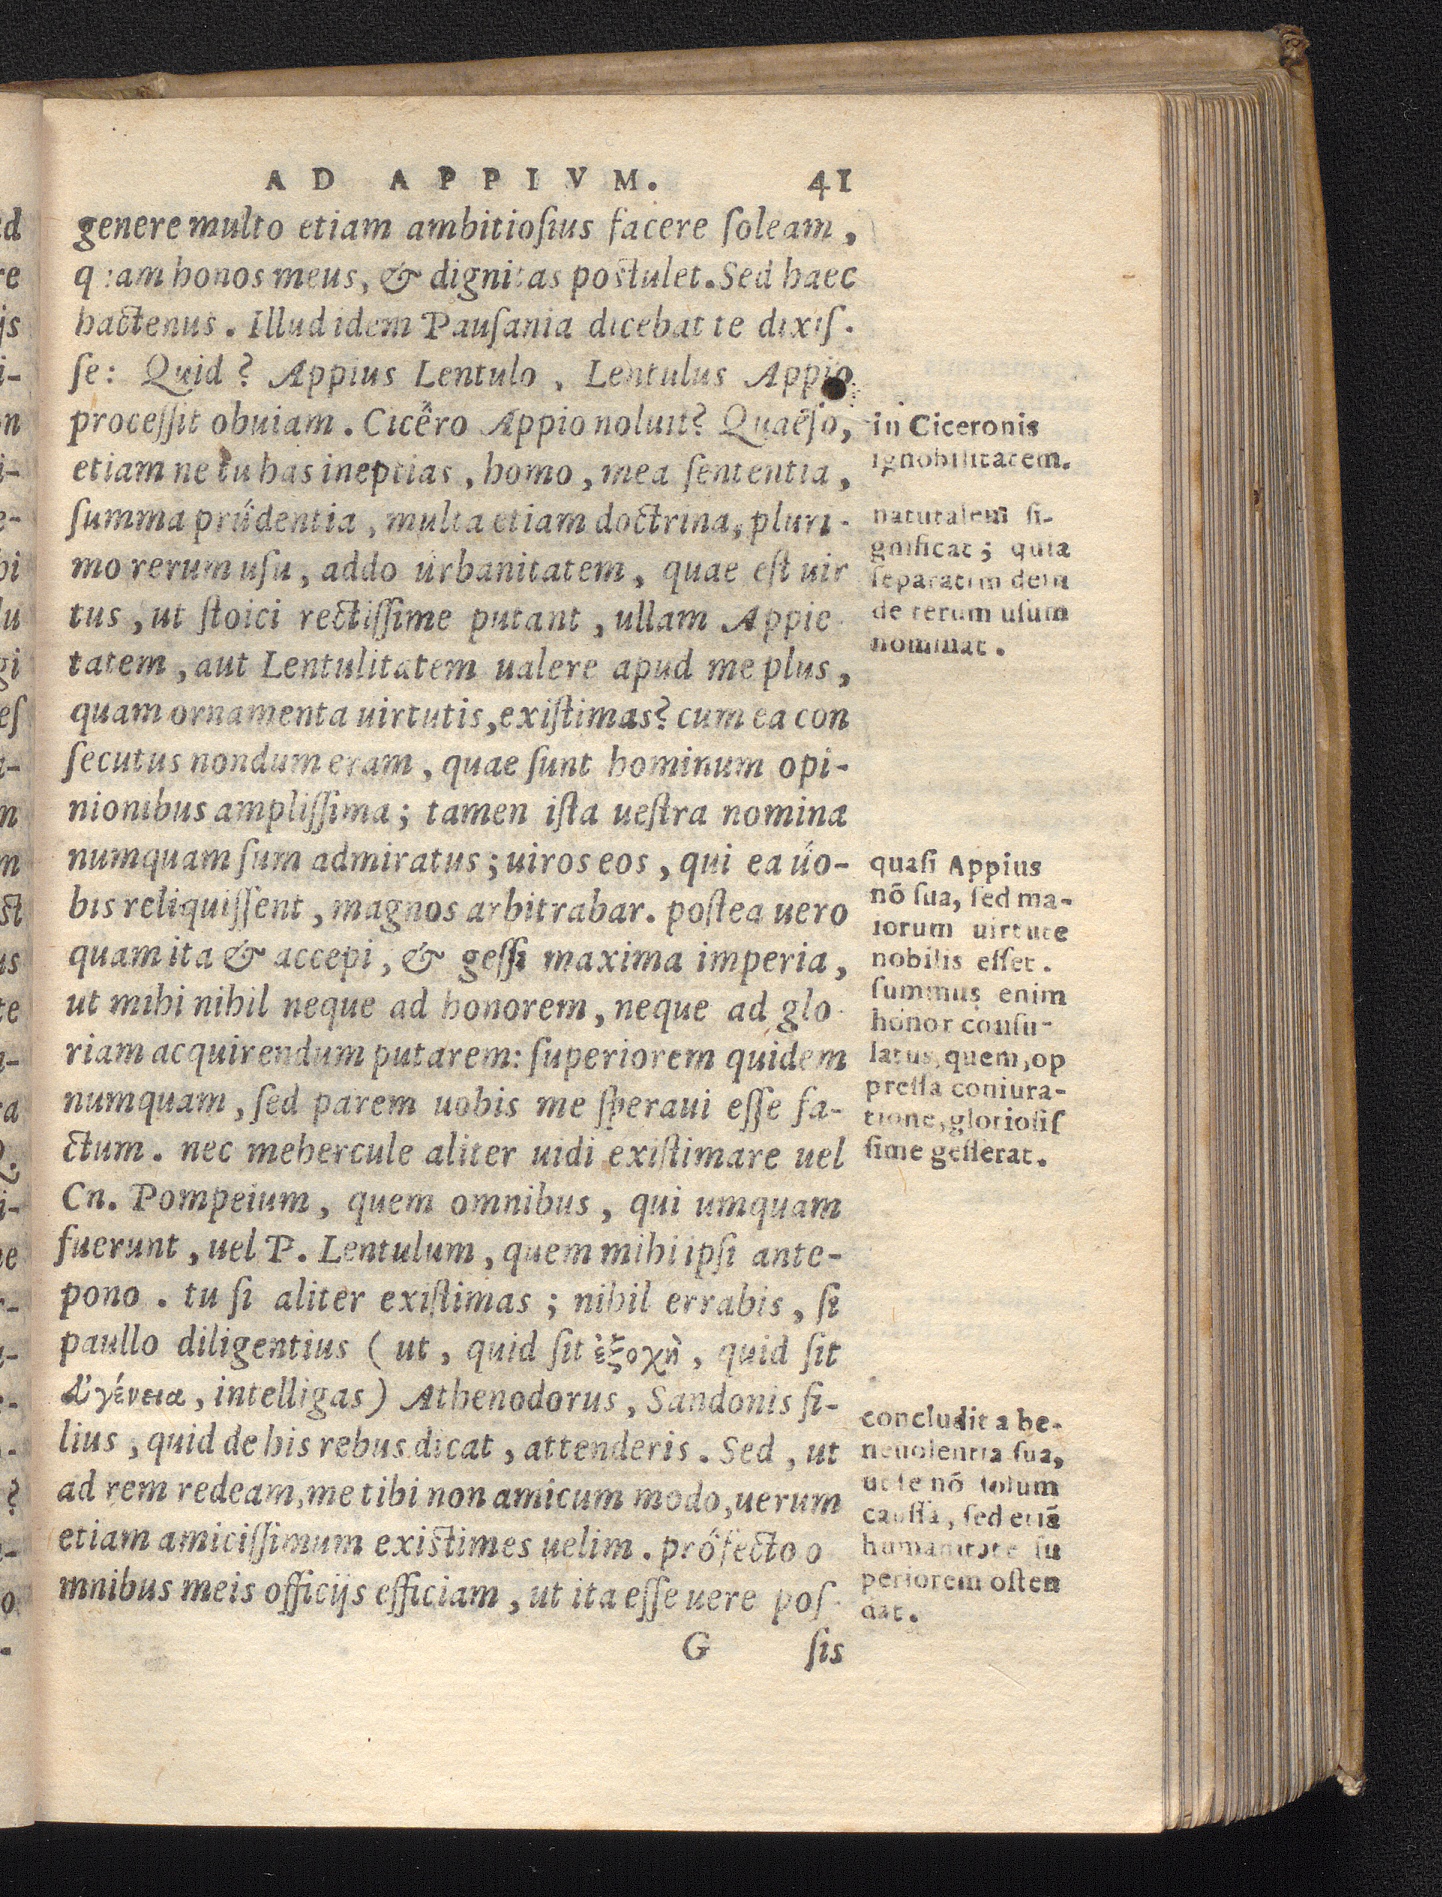 AD APPIVM. 41
genere multo etiam ambitioſius facere ſoleam,
quam honos meus, & dignitas poſtulet. Sed haec
hactenus. Illud idem Pauſania dicebat te dixiſ-
ſe: Quid? Appius Lentulo, Lentulus Appio
proceſſit obuiam. Cicero Appio noluit? Quaeſo,
etiam ne tu has ineptias, homo, mea ſententia,
ſumma prudentia, multa etiam doctrina, pluri-
mo rerum uſu, addo urbanitatem, quae eſt uir
tus, ut ſtoici rectiſſime putant, ullam Appie-
tatem, aut Lentulitatem ualere apud me plus,
quam ornamenta uirtutis, exiſtimas? cum ea con
ſecutus nondum eram, quae ſunt hominum opi-
nionibus ampliſſima; tamen iſta ueſtra nomina
numquam ſum admiratus; uiros eos, qui ea uo-
bis reliquiſſent, magnos arbitrabar. poſtea uero
quam ita & accepi, & geſſi maxima imperia,
ut mihi nihil neque ad honorem, neque ad glo-
riam acquirendum putarem: ſuperiorem quidem
numquam, ſed parem uobis me ſperaui eſſe fa-
ctum. nec mehercule aliter uidi exiſtimare uel
Cn. Pompeium, quem omnibus, qui umquam
fuerunt, uel P. Lentulum, quem mihi ipſi ante-
pono. tu ſi aliter exiſtimas; nihil errabis, ſi
paullo diligentius (ut, quid ſit ἐξοχὴ, quid ſit
εὐγένεια, intelligas) Athenodorus, Sandonis fi-
lius, quid de his rebus dicat, attenderis. Sed, ut
ad rem redeam, me tibi non amicum modo, uerum
etiam amiciſſimum exiſtimes uelim. profecto o
mnibus meis officijs efficiam, ut ita eſſe uere poſ-
G ſis
in Ciceronis
ignobilitatem.
naturalem ſi-
gnificat; quia
ſeparatim dein
de rerum uſum
nominat.
quaſi Appius
nõ ſua, ſed ma-
iorum uirtute
nobilis eſſet.
ſummus enim
honor conſu-
latus, quem, op
preſſa coniura-
tione, glorioſiſ
ſime geſſerat.
concludit a be-
neuolentia ſua,
ut ſe nõ ſolum
cauſſa, ſed etiã
humanitate ſu
periorem oſten
dat.